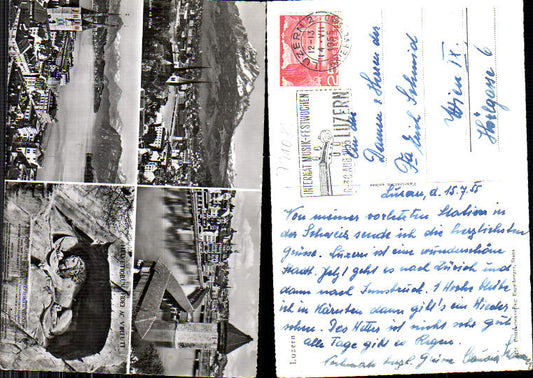 LUZERN 2
12-13
14.VII
1955
25
INTERNAT. MUSIK-FESTWOCHEN
LUZERN
An die
Damen & Herren der
Fa. Erich Schmid
Wien IX.
Hörlgasse 6
Luzern, d. 15.7.55
Von meiner vorletzten Station in
der Schweiz sende ich die herzlichsten
Grüsse. Luzern ist eine wunderschöne
Stadt. Jetzt geht es nach Zürich und
dann nach Innsbruck. 1 Woche bleibe
ich in Kärnten dann gibt's ein Wieder
sehen. Das Wetter ist nicht sehr gut
alle Tage gibt es Regen.
Nochmals Grüsse
Luzern
HELVETIORUM FIDEI AC VIRTUTI